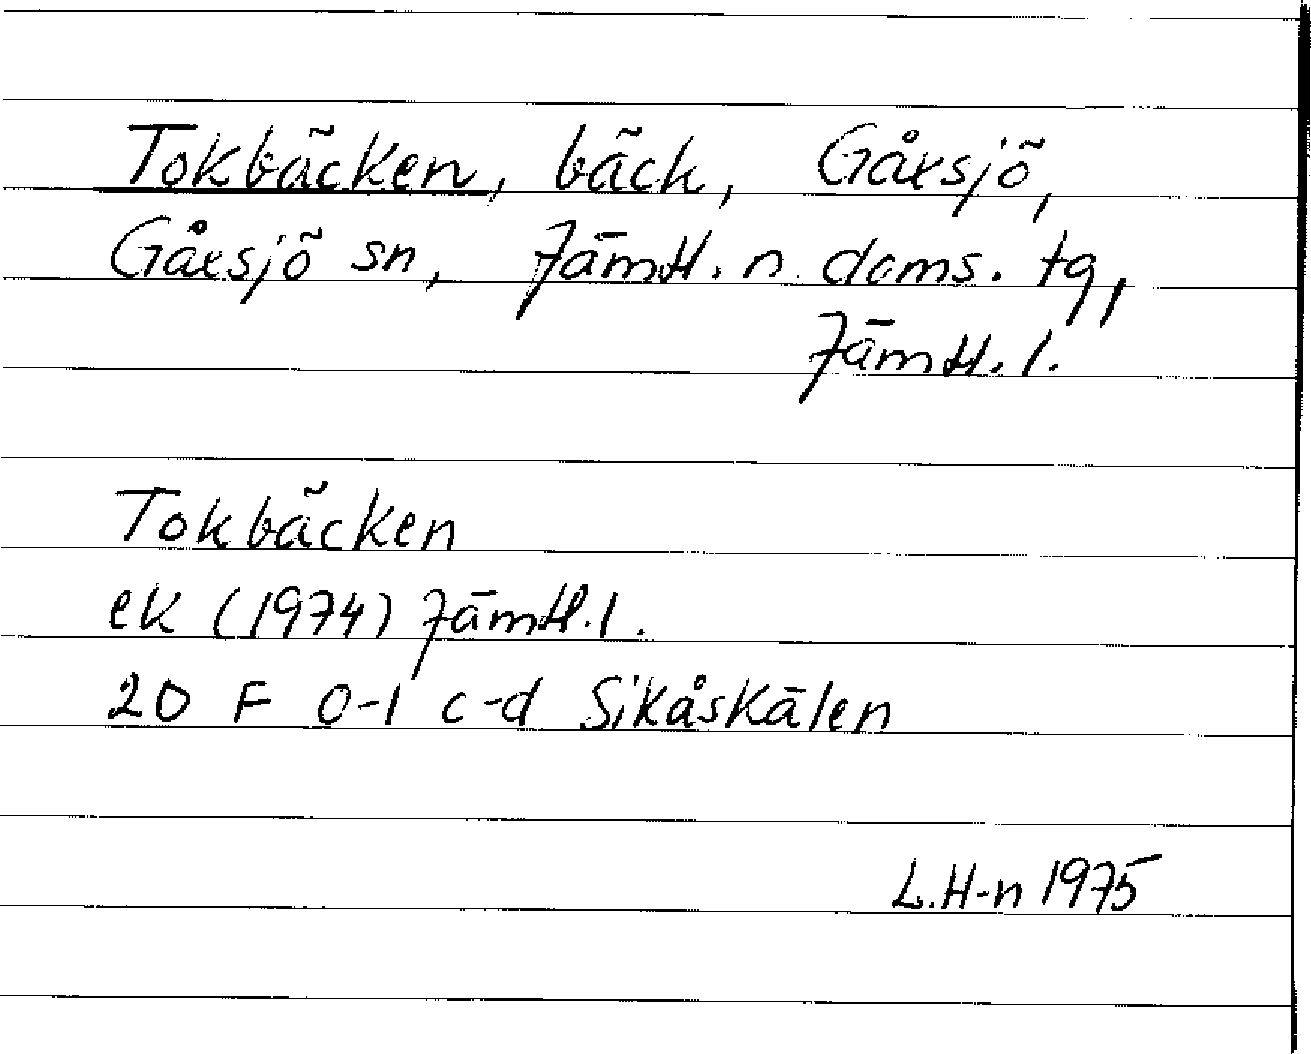 Tokbäcken, bäck, Gåxsjö,
Gåxsjö sn, Jämtl. n. doms. tg,
Jämtl. l.
Tokbäcken
ek (1974) Jämtl. l.
20 F 0-1 c-d Sikåskälen
L.H-n 1975